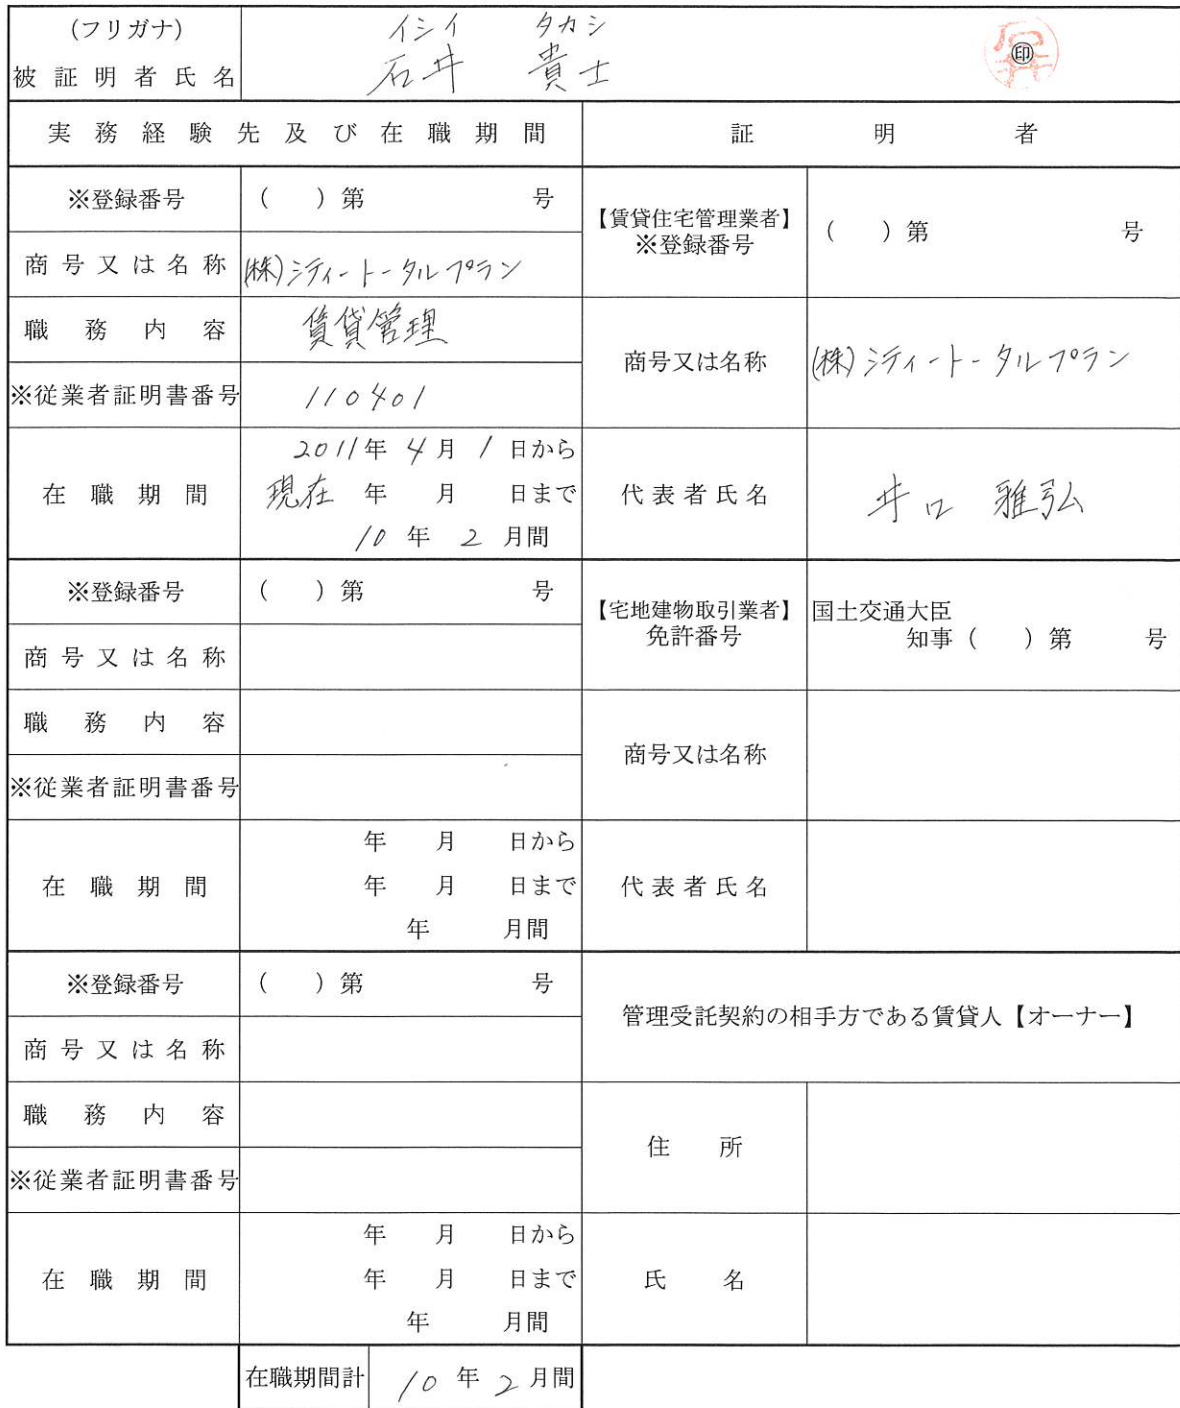 (フリガナ) イシイ タカシ
被証明者氏名 石井 貴士 ㊞
実務経験先及び在職期間 証明者
※登録番号 ( )第 号 【賃貸住宅管理業者】※登録番号 ( )第 号
商号又は名称 (株)シティートータルプラン
職務内容 賃貸管理 商号又は名称 (株)シティートータルプラン
※従業者証明書番号 110401
在職期間 2011年 4月 1日から 代表者氏名 井口 雅弘
現在 年 月 日まで
10年 2月間
※登録番号 ( )第 号 【宅地建物取引業者】免許番号 国土交通大臣
知事( )第 号
商号又は名称
職務内容 商号又は名称
※従業者証明書番号
在職期間 年 月 日から 代表者氏名
年 月 日まで
年 月間
※登録番号 ( )第 号 管理受託契約の相手方である賃貸人【オーナー】
商号又は名称
職務内容 住所
※従業者証明書番号
在職期間 年 月 日から 氏名
年 月 日まで
年 月間
在職期間計 10年2月間